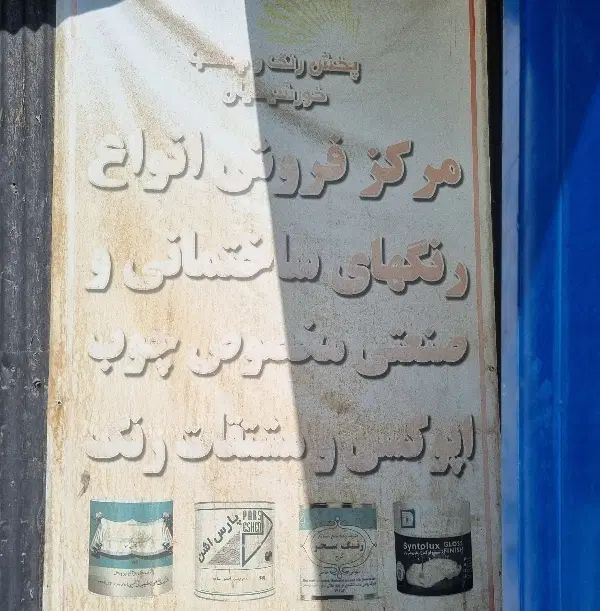 پخش رنگ و چسب
خورشیدیان
مرکز فروش انواع
رنگهای ساختمانی و
صنعتی مخصوص چوب
اپوکسی و مشتقات رنگ
پارس اشن
PARS
ESHEN
رنگ سحر
Syntolux GLOSS
FINISH